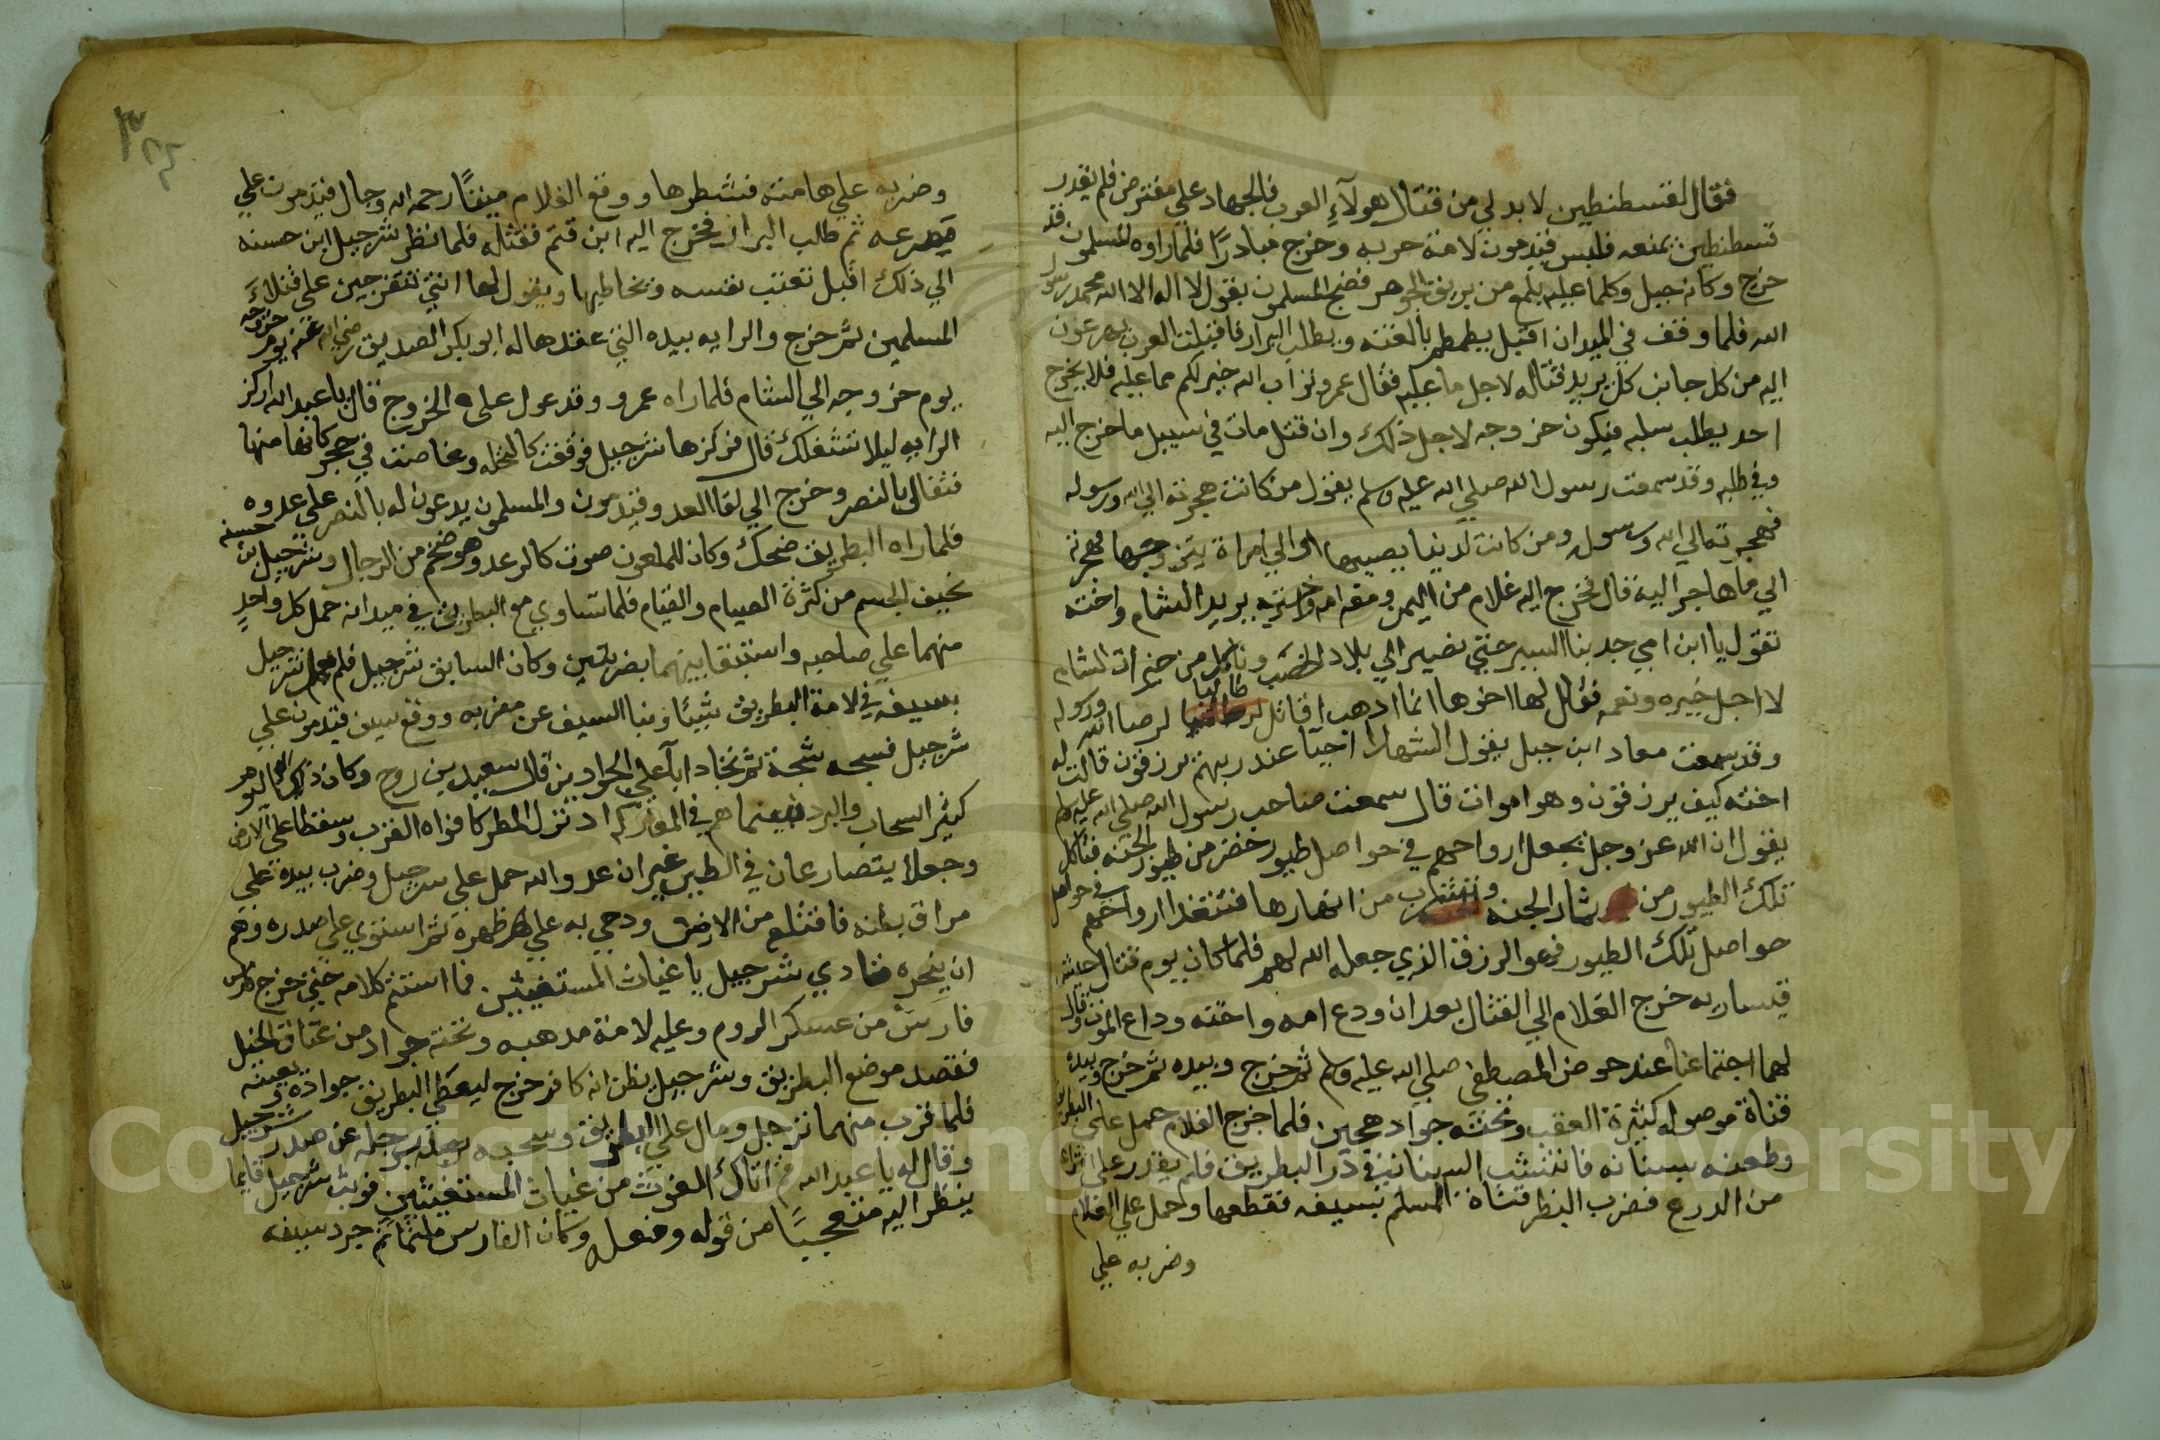 فقال لقسطنطين لا بد لي من قتال هولآء العرب فالجهاد علي مفترض فلم يقدر
قسطنطين يمنعه فلبس قيدمون لامة حربه وخرج مبادرًا فلما راوه المسلمون قد
خرج وكانه جبل وكلما عليه يلمع من بريق الجوهر فضج المسلمون بقول لا اله الا الله محمد رسول
الله فلما وقف في الميدان اقبل يطمطم بالغته ويطلب البراز فاقبلت العرب يهرعون
اليه من كل جانب كل يريد قتاله لاجل ما عليه فقال عمرو ثواب الله خير لكم مما عليه فلا يخرج
احد يطلب سلبه فيكون خروجه لاجل ذلك وان قتل مات في سبيل ما خرج اليه
وفي طلبه وقد سمعت رسول الله صلي الله عليه وسلم يقول من كانت هجرته الي الله ورسوله
فهجرته الي الله ورسوله ومن كانت لدنيا يصيبها او الي امراة يتزوجها فهجرته
الي ما هاجر اليه قال فخرج اليه غلام من اليمن ومعه امه واخته يريد الشام واخته
تقول يا ابن امي جد بنا السير حتي نصير الي بلاد الخصب وناكل من خيرات الشام
لا اجل خيره ونعمه فقال لها اخوها انما اذهب اقاتل لرضا الله ورسوله
وقد سمعت معاد ابن جبل يقول الشهدا احيآ عند ربهم يرزقون قالت له
اخته كيف يرزقون وهو اموات قال سمعت صاحب رسول الله صلي الله عليه وسلم
يقول ان الله عز وجل يجعل ارواحهم في حواصل طيور خضر من طيور الجنه فتاكل
تلك الطيور من ثمار الجنه وتشرب من انهارها فتتغدا ارواحهم في حواصل
حواصل تلك الطيور فهو الرزق الذي جعله الله لهم فلما كان يوم قتال جيش
قيساريه خرج الغلام الي القتال بعد ان ودع امه واخته وداع الموت وقال
لهما اجتماعنا عند حوض المصطفي صلي الله عليه وسلم ثم خرج وبيده ثم خرج وبيده
قناة موصوله كثيرة العقب وتحته جواد هجين فلما خرج الغلام حمل علي البطريق
وطعنه بسنانه فانتشب السنان في درع البطريق فلم يقدر علي انتزاعه
من الدرع فضرب البطر قناة المسلم بسيفه فقطعها وحمل علي الغلام
وضربه علي
وضربه علي هامته فشطرها ووقع الغلام ميتًا رحمه الله وجال قيدمون علي
مصرعه ثم طالب البراز فخرج اليه ابن قثم فقتله فلما نظر شرجيل ابن حسنه
الي ذلك اقبل يعتب نفسه ويخاطبها ويقول لها انتي تتفرجين علي قتلآء
المسلمين ثم خرج والرايه بيده التي عقدها له ابو بكر الصديق رضي الله عنه يوم خروجه
يوم خروجه الي الشام فلما راه عمرو وقد عول علي الخروج قال يا عبد الله اركز
الرايه ليلا تشغلك قال فركزها شرجيل فوقفت كالنخله وغاصت في حجر كانها منها
تفالي بالنصر وخرج الي لقا العدو قيدمون والمسلمون يدعون له بالنصر علي عدوه
فلما راه البطريق ضحك وكان للملعون صوت كالرعد وهو ضخم من الرجال وشرجيل بن حسنه
نحيف الجسم من كثرة الصيام والقيام فلما تساوي مع البطريق في ميدانه حمل كل واحدٍ
منهما علي صاحبه واستبقا بينهما بضربتين وكان السابق شرجيل فلم يعمل شرجيل
بسيفه في لامة البطريق شيئًا ونبا السيف عن مضربه ووقع سيف قيدمون علي
شرجيل فشجه شجة ثم تجادبا علي الجوادين قال سعيد بن روح وكان ذلك اليوم
كثير السحاب والبرد فبينما هم في المعاركه اد نزل المطر كافواه القرب وسقطا علي الارض
وجعلا يتصارعان في الطين غير ان عدو الله حمل علي شرجيل وضرب بيده علي
مراق بطنه فاقتلع من الارض ودحي به علي ظهره ثم استوي علي صدره وهم
ان ينحره فنادي شرجيل يا غياث المستغيثين فما استتم كلامه حتي خرج فارس
فارس من عسكر الروم وعليه لامة مدهبه وتحته جواد من عتاق الخيل
فقصد موضع البطريق وشرجيل يظن انه كافر خرج ليعطي البطريق جواده ويعينه
فلما قرب منهما ترجل ومال علي البطريق وسحبه برجله عن صدر شرجيل
وقال له يا عبد الله اتاك الغوث من غياث المستغيثين فوثب شرجيل قايما
ينظر اليه متعجبًا من قوله وفعله وكان الفارس ملتما ثم جرد سيفه
Copyright © King Saud University